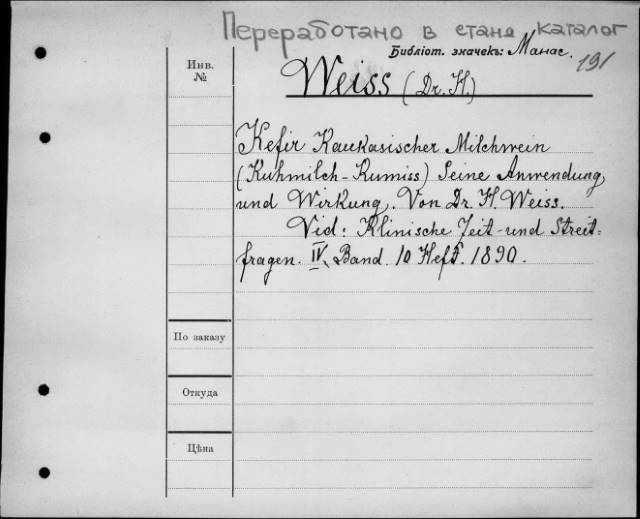 Переработано в станд каталог
Библіот. значекъ: Манас.
191
Инв.
№
Weiss (Dr. H.)
Kefir Kaukasischer Milchwein
(Kuhmilch-Kumiss) Seine Anwendung
und Wirkung. Von Dr. H. Weiss.
Vid: Klinische Zeit- und Streit-
fragen. IV. Band. 10 Heft. 1890.
По заказу
Откуда
Цѣна